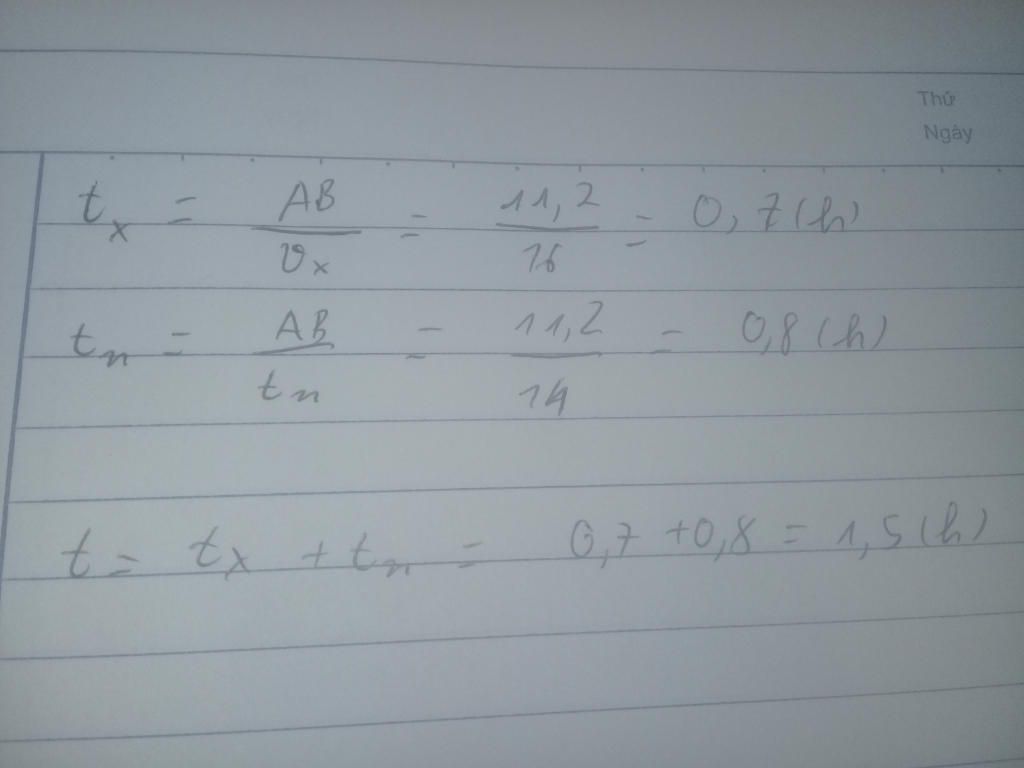 Thứ
Ngày
t_x = AB / v_x = 11,2 / 16 = 0,7 (h)
t_n = AB / t_n = 11,2 / 14 = 0,8 (h)
t = t_x + t_n = 0,7 + 0,8 = 1,5 (h)